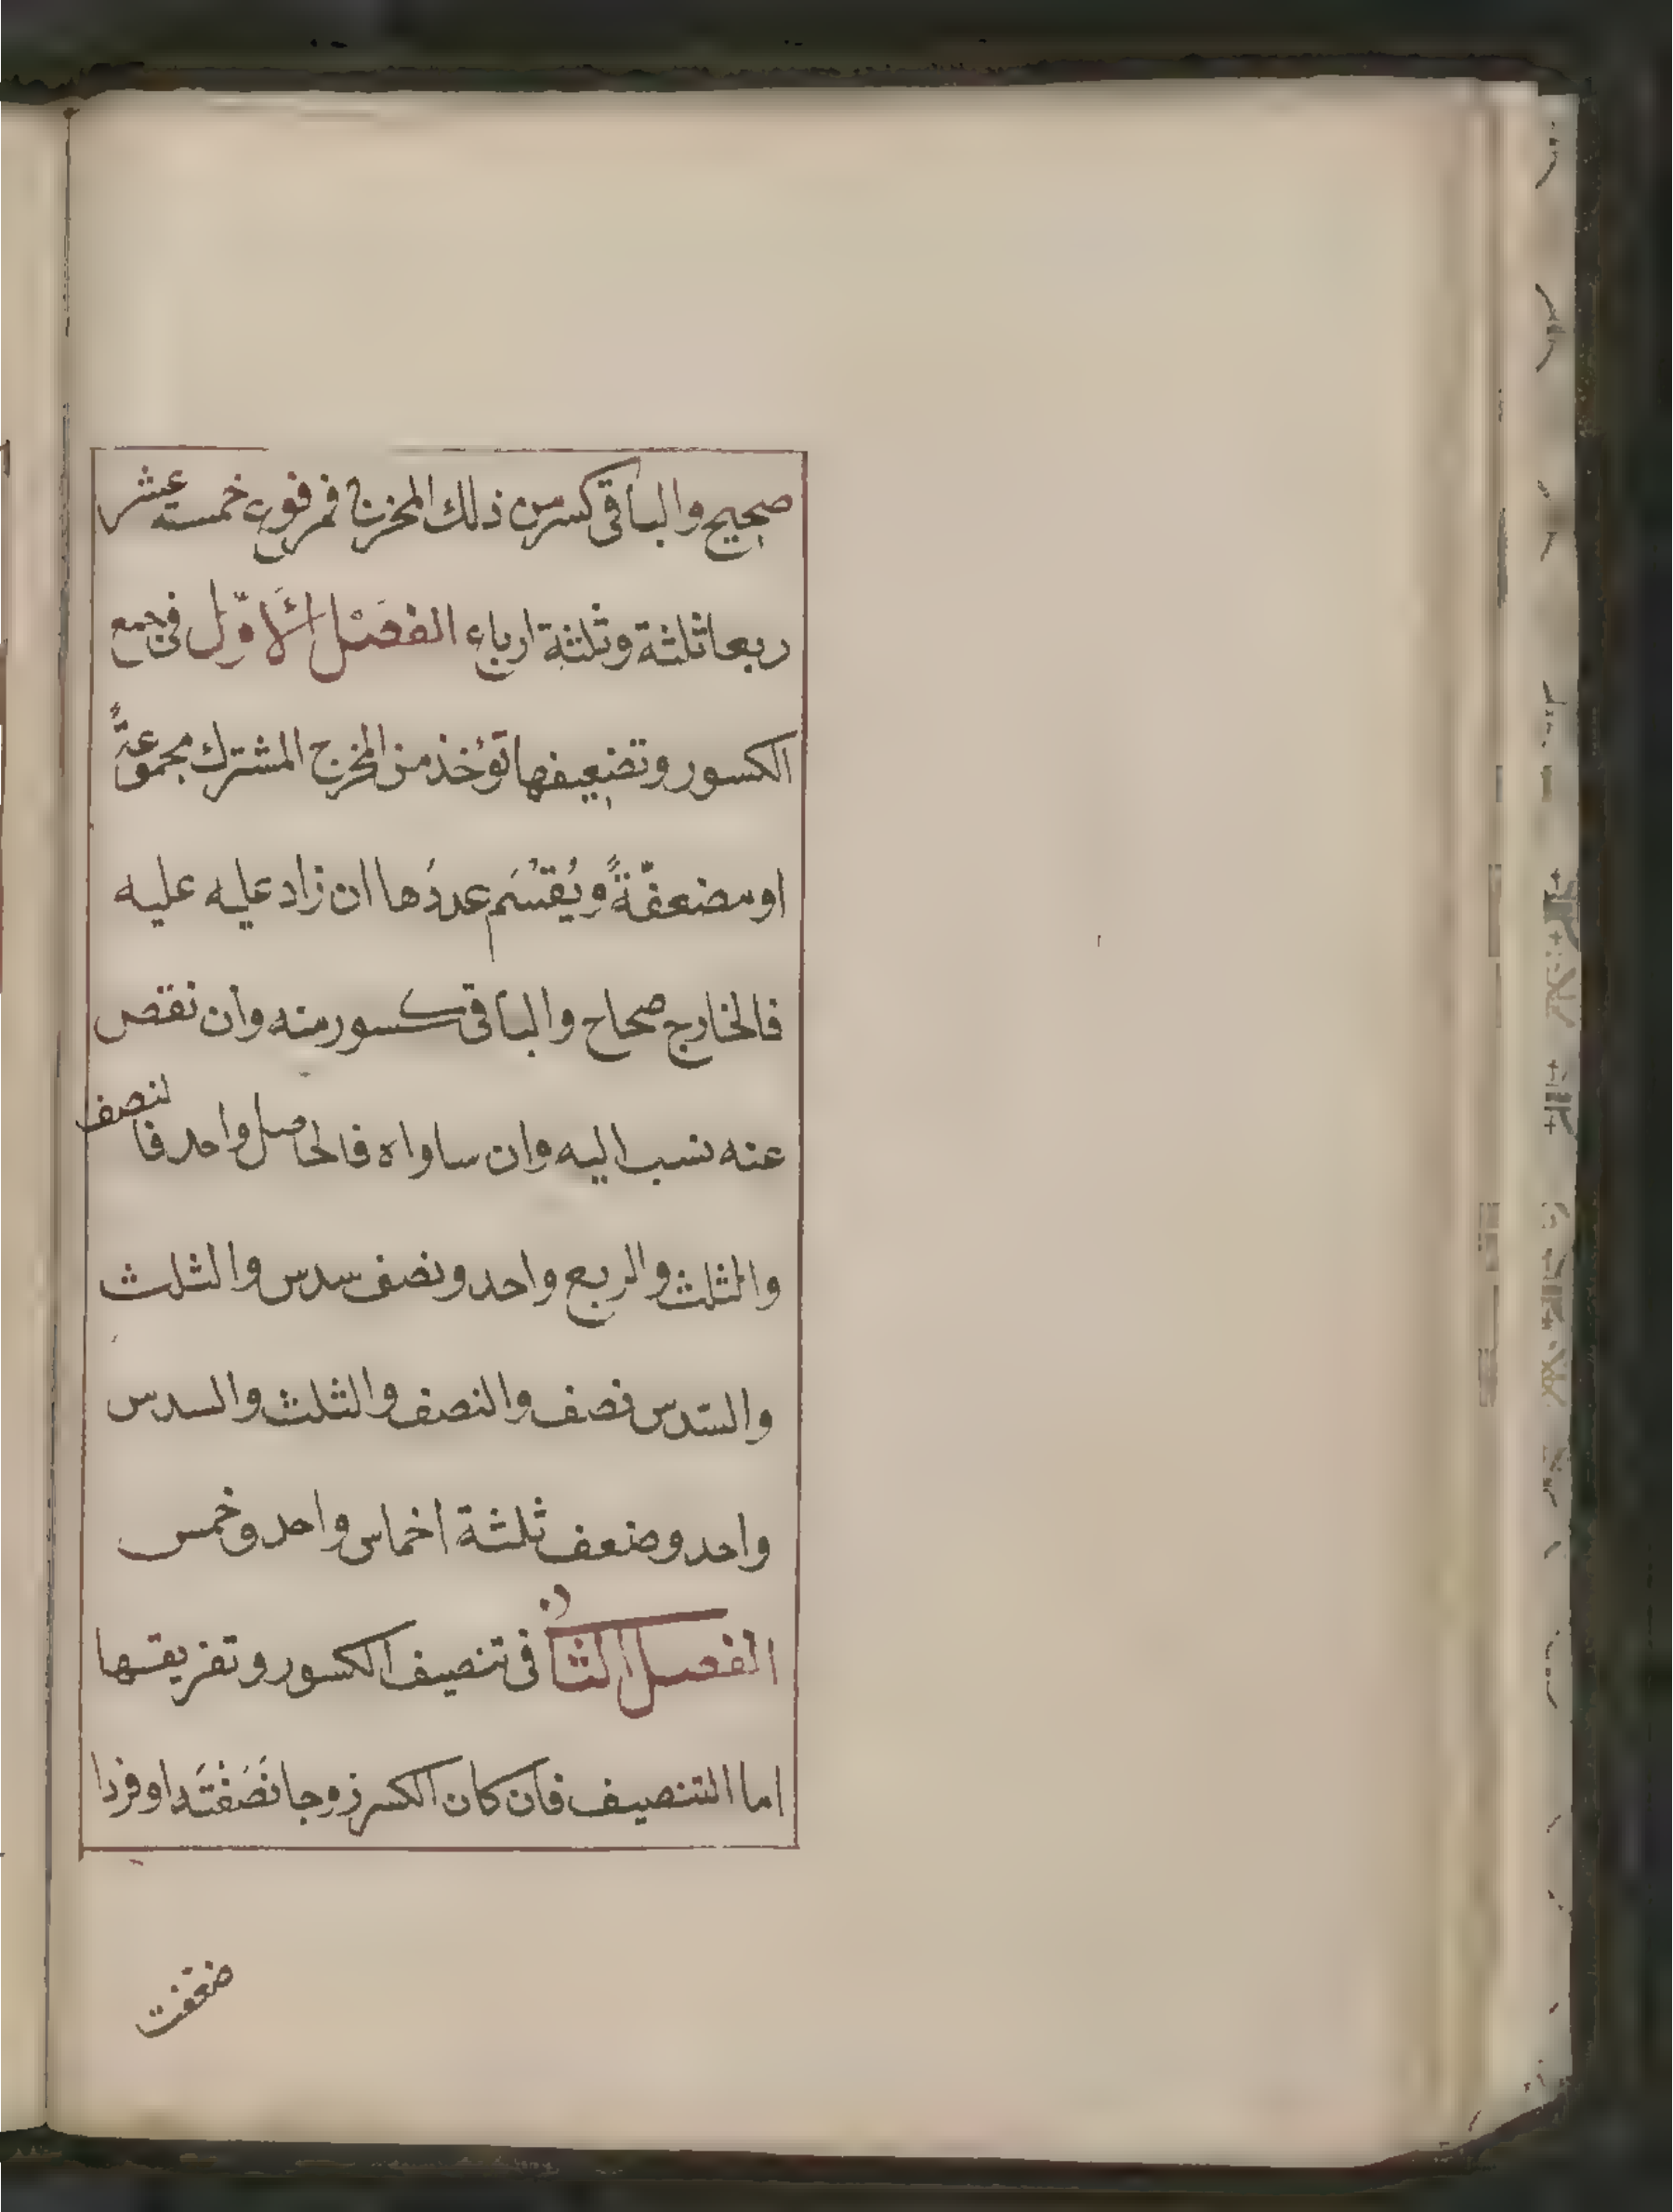 صحيح والباقى كسر من ذلك المخرج فمرفوع خمسة عشر
ربعا ثلثة وثلثة ارباع الفصل الاوّل فى جمع
الكسور وتضعيفها تؤخذ من المخرج المشترك مجموعةً
او مضعفّةً ويُقسَم عددُها ان زاد عليه عليه
فالخارج صحاح والباقى كسور منه وان نقص
عنه نسب اليه وان ساواه فالحاصل واحد فالنصف
والثلث والربع واحد ونصف سدس والثلث
والسّدس نصف والنصف والثلث والسدس
واحد وضعف ثلثة اخماس واحد وخمس
الفصل الثانى فى تنصيف الكسور وتفريقها
اما التنصيف فان كان الكسر زوجا نَصَفْتَه او فردا
ضعّفت